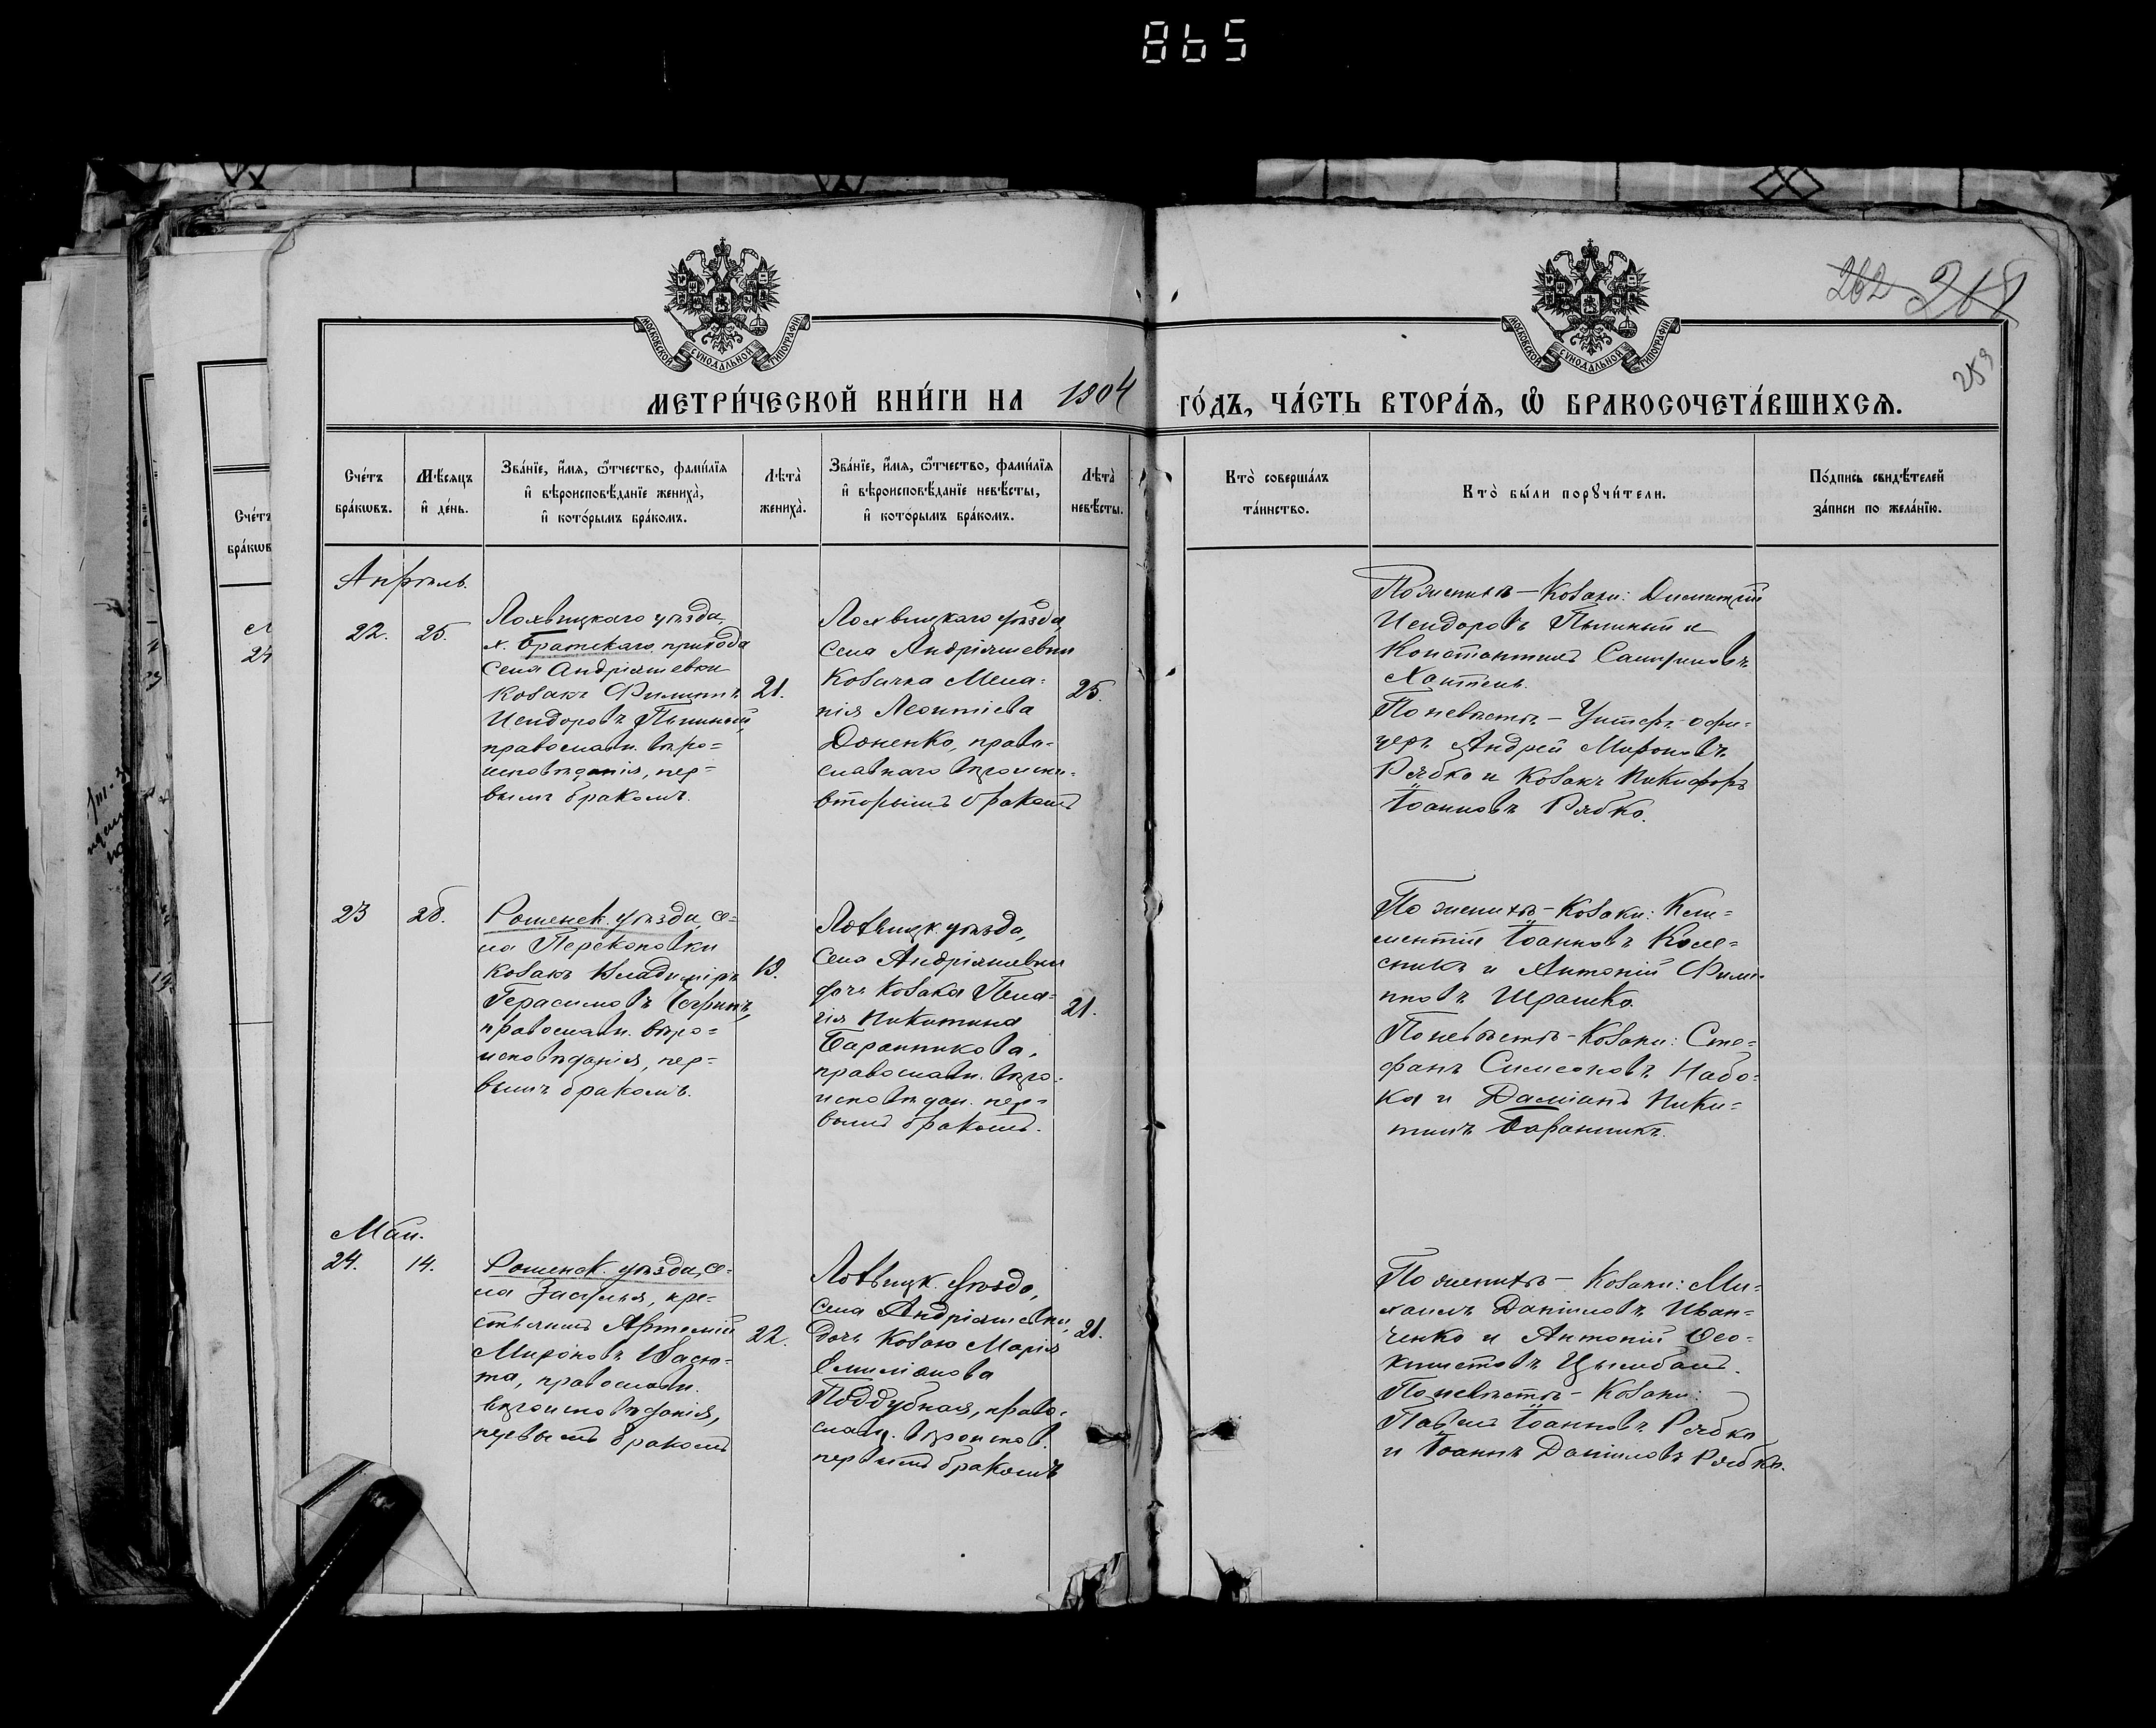 865
МОСКОВСКОЙ СѴНОДАЛЬНОЙ ТИПОГРАФІИ
МОСКОВСКОЙ СѴНОДАЛЬНОЙ ТИПОГРАФІИ
262
259
МЕТРИ́ЧЕСКОЙ КНИ́ГИ НА 1904 ГО́ДЪ, ЧА́СТЬ ВТОРА́Ѧ, Ѽ БРАКОСОЧЕТА́ВШИХСѦ.
Сче́тъ бра́кωвъ.
Мѣ́сяцъ и҆ де́нь.
Зва́нїе, и҆́мя, ѻ҆́тчество, фами́лїя
и҆ вѣроисповѣ́данїе жениха̀,
и҆ кото́рымъ бра́комъ.
Лѣта̀ жениха̀.
Зва́нїе, и҆́мя, ѻ҆́тчество, фами́лїя
и҆ вѣроисповѣ́данїе невѣ́сты,
и҆ кото́рымъ бра́комъ.
Лѣта̀ невѣ́сты.
Кто̀ соверша́лъ та́инство.
Кто̀ бы́ли порꙋчи́тели.
По́дпись свидѣ́телей за́писи по жела́нїю.
Апрѣль.
22.
25.
Лохвицкаго уѣзда,
х. Братскаго прихода
села Андріяшевки
козакъ Филиппъ
Исидоровъ Пычный,
православн. вѣро=
исповѣданія, пер=
вымъ бракомъ.
21.
Лохвицкаго уѣзда
села Андріяшевки
козачка Мела=
нія Леонтіева
Доненко, право-
славнаго вѣроиспо.
вторымъ бракомъ
25.
По женихѣ – козаки: Димитрій
Исидоровъ и
Константинъ
По невѣстѣ – Унтеръ-офи-
церъ Андрей Мироновъ
Рябко и козакъ Никифоръ
Іоанновъ Рябко.
23
28.
Роменск. уѣзда, се=
ла Перекоповки
козакъ Владиміръ
Герасимовъ
православн. вѣро=
исповѣданія, пер=
вымъ бракомъ.
19.
Лохвицк. уѣзда,
села Андріяшевки
дочь козака Пела-
гія Никитина
Баранникова,
православн. вѣро-
исповѣдан. пер=
вымъ бракомъ.
21.
По женихѣ – козаки: Кли=
ментій Іоанновъ Коле=
сникъ и Антоній Фили-
пповъ Шрамко.
По невѣстѣ – козаки: Сте=
фанъ Симеоновъ Набо-
ка и Даміанъ Ники=
тинъ Баранникъ.
Май.
24.
14.
Роменск. уѣзда, се-
ла Засулья, кре=
стьянинъ Артемій
Мироновъ Васю-
та, православн.
вѣроисповѣданія,
первымъ бракомъ
22.
Лохвицк. уѣзда,
села Андріяшевки,
дочь козака Марія
Емиліанова
Поддубная, право-
славн. вѣроисповѣд.
первымъ бракомъ
21.
По женихѣ – козаки: Ми-
хаилъ Даніиловъ Иван=
ченко и Антоній Фео-
ктистовъ Цымбалъ.
По невѣстѣ – козаки:
Павелъ Іоанновъ Рябко
и Іоаннъ Даніиловъ Рябко.